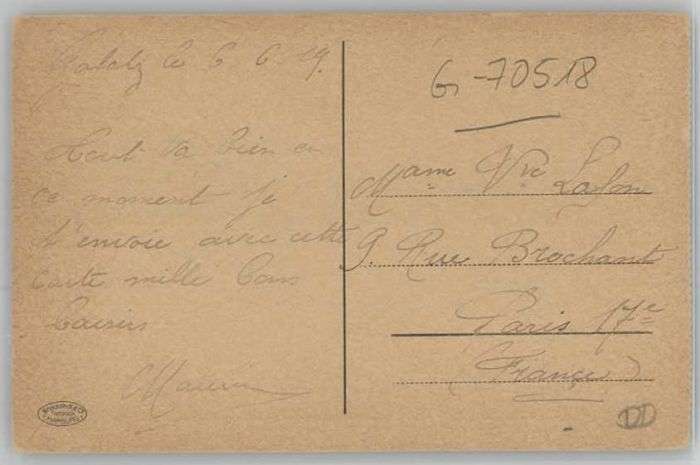 Galatz le 6 6 19.
Tout va bien en
ce moment je
t'envoie avec cette
carte mille bons
baisers
G-70518
Mame Vve
9. Rue Brochant
Paris 17e
(France)